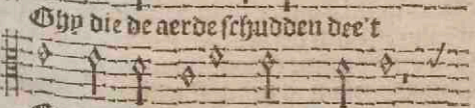 Ghy die de aerde schudden dee't